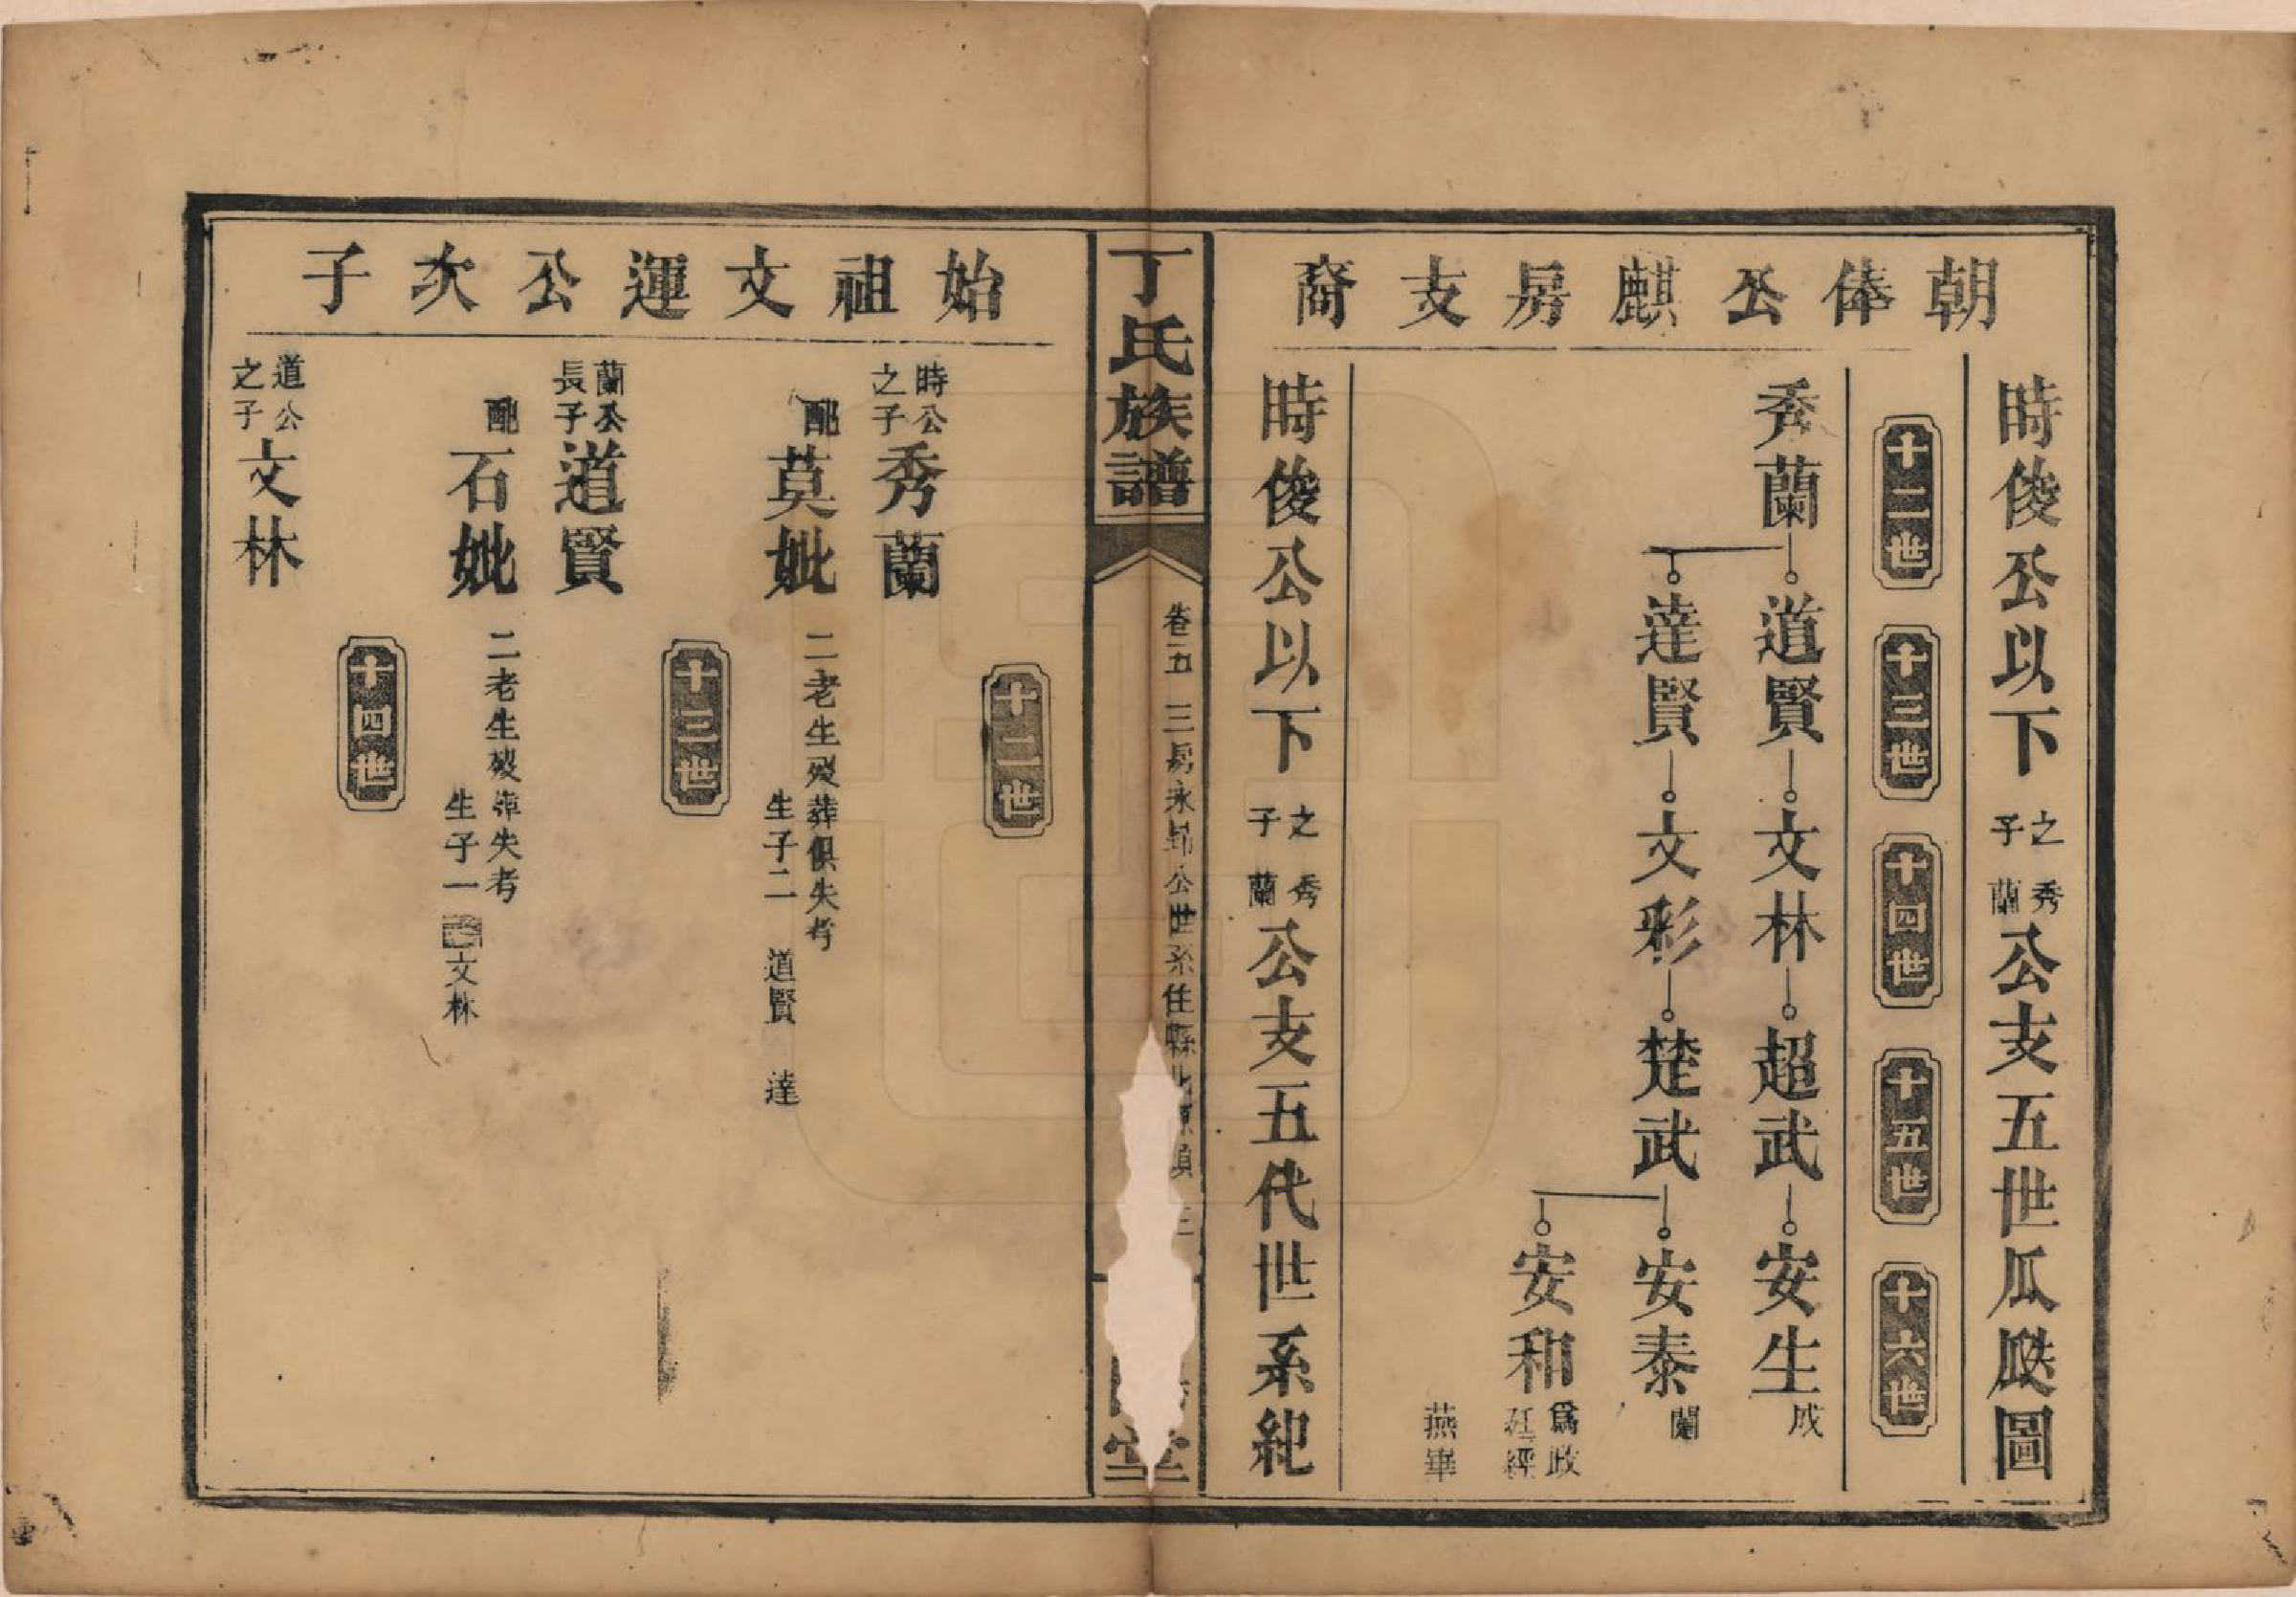 朝俸公麒房支裔
時俊公以下之子秀蘭公支五世瓜瓞圖
十二世 十三世 十四世 十五世 十六世
秀蘭 道賢 文林 超武 安生 成
達賢 文彩 楚武 安泰 蘭
安和 爲政 廷經
燕 畢
時俊公以下之子秀蘭公支五代世系紀
丁氏族譜
卷五 三房永昻公世系住縣
堂
始祖文運公次子
十二世
時公之子 秀蘭
配 莫妣 二老生殁葬俱失考
生子二 道賢 達
十三世
蘭公長子 道賢
配 石妣 二老生殁葬失考
生子一 文林
十四世
道公之子 文林